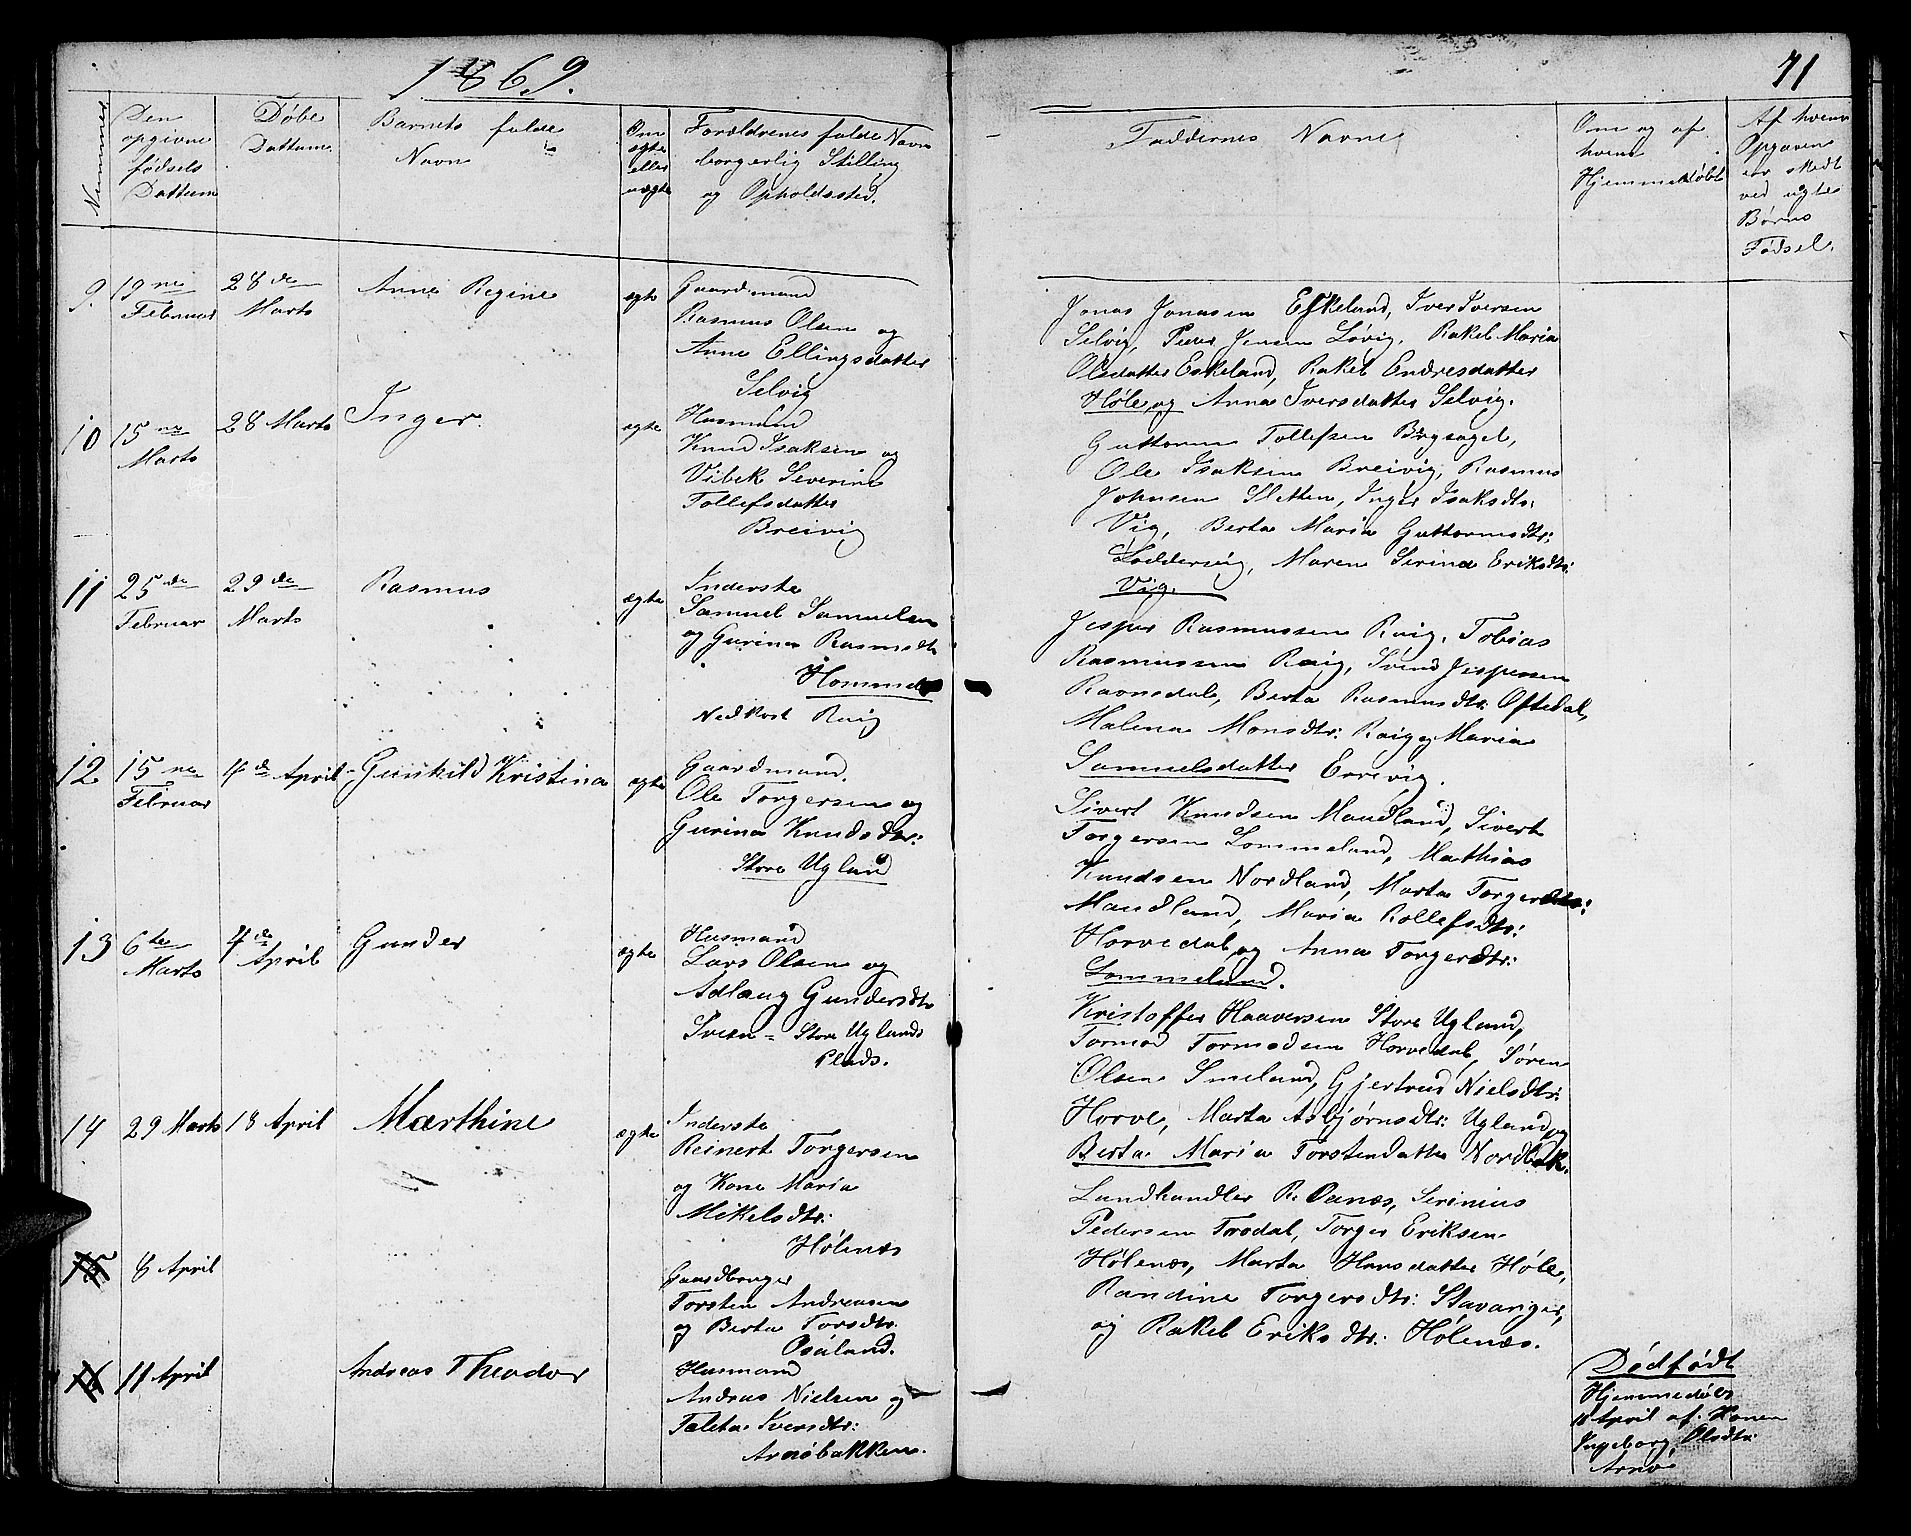 1869.
71
Nummer
Den
opgivne
fødsels
Dattum
Døbe
Dattum.
Barnets fulde
Navn
Om
ægte
eller
uægte
Forældrenes fulde Navn
borgerlig Stilling
og Opholdssted.
Faddernes Navne
Om og af
hvem
Hjemmedøbt
Af hvem
Opgaven
er skedt
ved ugte
Børns
Fødsel.
9. 19ne Februar
28de Marts
Anne Regine
ægte
Gaardmand
Rasmus Olsen og
Anne Ellingsdatter
Selvig
Jonas Jonasen Eskeland, Iver Iversen
Selvig, Peder Jensen Løvig, Rakel Maria
Olsdatter Eskeland, Rakel Endresdatter
Høle og Anna Iversdatter Selvig.
10 15ne Marts
28 Marts
Inger.
ægte
Husmand
Knud Isaksen og
Vibek Severine
Tollefsdatter
Breivig
Guttorm Tollefsen Bergsagel,
Ole Isaksen Breivig, Rasmus
Johnsen Sletten, Inger Isaksdtr:
Vig, Berta Maria Guttormsdtr:
Loddervig, Maren Serina Eriksdtr:
Vig.
11 25de Februar
29de Marts
Rasmus
ægte
Inderste
Samuel Samuelsen
og Gurina Rasmsdtr
Hommel
Nedkost Raig
Jesper Rasmussen Raig, Tobias
Rasmussen Raig, Svend Jespersen
Ravnsdal, Berta Rasmusdtr: Oftedal,
Malena Monsdtr: Raig og Maria
Samuelsdatter Errevig.
12 15ne Februar
4de April
Gunhild Kristina
ægte
Gaardmand.
Ole Torgersen og
Gurina Knudsdtr:
Store Ugland
Sivert Knudsen Maudland, Sivert
Torgersen Lommeland, Mathias
Knudsen Nordland, Marta Torgersdtr:
Maudland, Maria Rollefsdtr:
Horvedal og Anna Torgersdtr:
Lommeland.
13 6te Marts
4de April
Gunder
ægte
Husmand
Lars Olsen og
Adlaug Gundersdtr
Sveen- Store Uglands
Plads.
Kristoffer Haaversen Store Ugland,
Tormod Tormodsen Horvedal, Søren
Olsen Smeland, Gjertrud Nielsdtr:
Horve, Marta Asbjørnsdtr: Ugland og
Berta Maria Torstendatter Nordbek.
14 29 Marts
18 April
Marthine
ægte
Inderste
Reinert Torgersen
og Kone Maria
Mikelsdtr:
Hølenæs
Landhandler R. Oanæs, Serinius
Pedersen Torsdal, Torger Eriksen
Hølenæs, Marta Hansdatter Høle,
Randine Torgersdtr: Stavanger,
og Rakel Eriksdtr: Hølenæs.
15 8 April
Gaardbruger
Torsten Andreasen
og Berta Torsdtr:
Osaland.
Dødfødt
16 11 April
Andreas Theodor
Husmand
Andreas Nielsen og
Taleta Iversdtr:
Arnøbakken.
Hjemmedøbt
11 April af Konen
Ingeborg Olsdtr:
Arnø